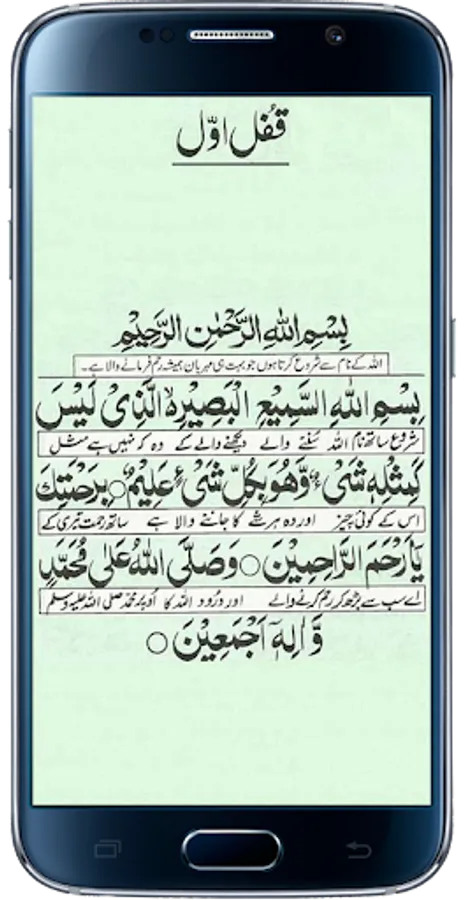 قفل اوّل
بِسْمِ اللهِ الرَّحْمٰنِ الرَّحِيْمِ
اللہ کے نام سے شروع کرتا ہوں جو بہت ہی مہربان ہمیشہ رحم فرمانے والا ہے۔
بِسْمِ اللهِ السَّمِيْعِ الْبَصِيْرِ۟ الَّذِىْ لَيْسَ
شروع ساتھ نام اللہ سُننے والے دیکھنے والے کے وہ کہ نہیں ہے مثل
كَمِثْلِهٖ شَىْءٌ وَّهُوَ بِكُلِّ شَىْءٍ عَلِيْمٌ ○ بِرَحْمَتِكَ
اس کے کوئی چیز اور وہ ہر شے کا جاننے والا ہے ساتھ رحمت تیری کے
يَآ اَرْحَمَ الرَّاحِمِيْنَ ○ وَصَلَّى اللهُ عَلٰى مُحَمَّدٍ
اے سب سے بڑھ کر رحم کرنے والے اور درُود اللہ کا اُوپر محمد صلی اللہ علیہ وسلم
وَّ اٰلِهٖٓ اَجْمَعِيْنَ ○